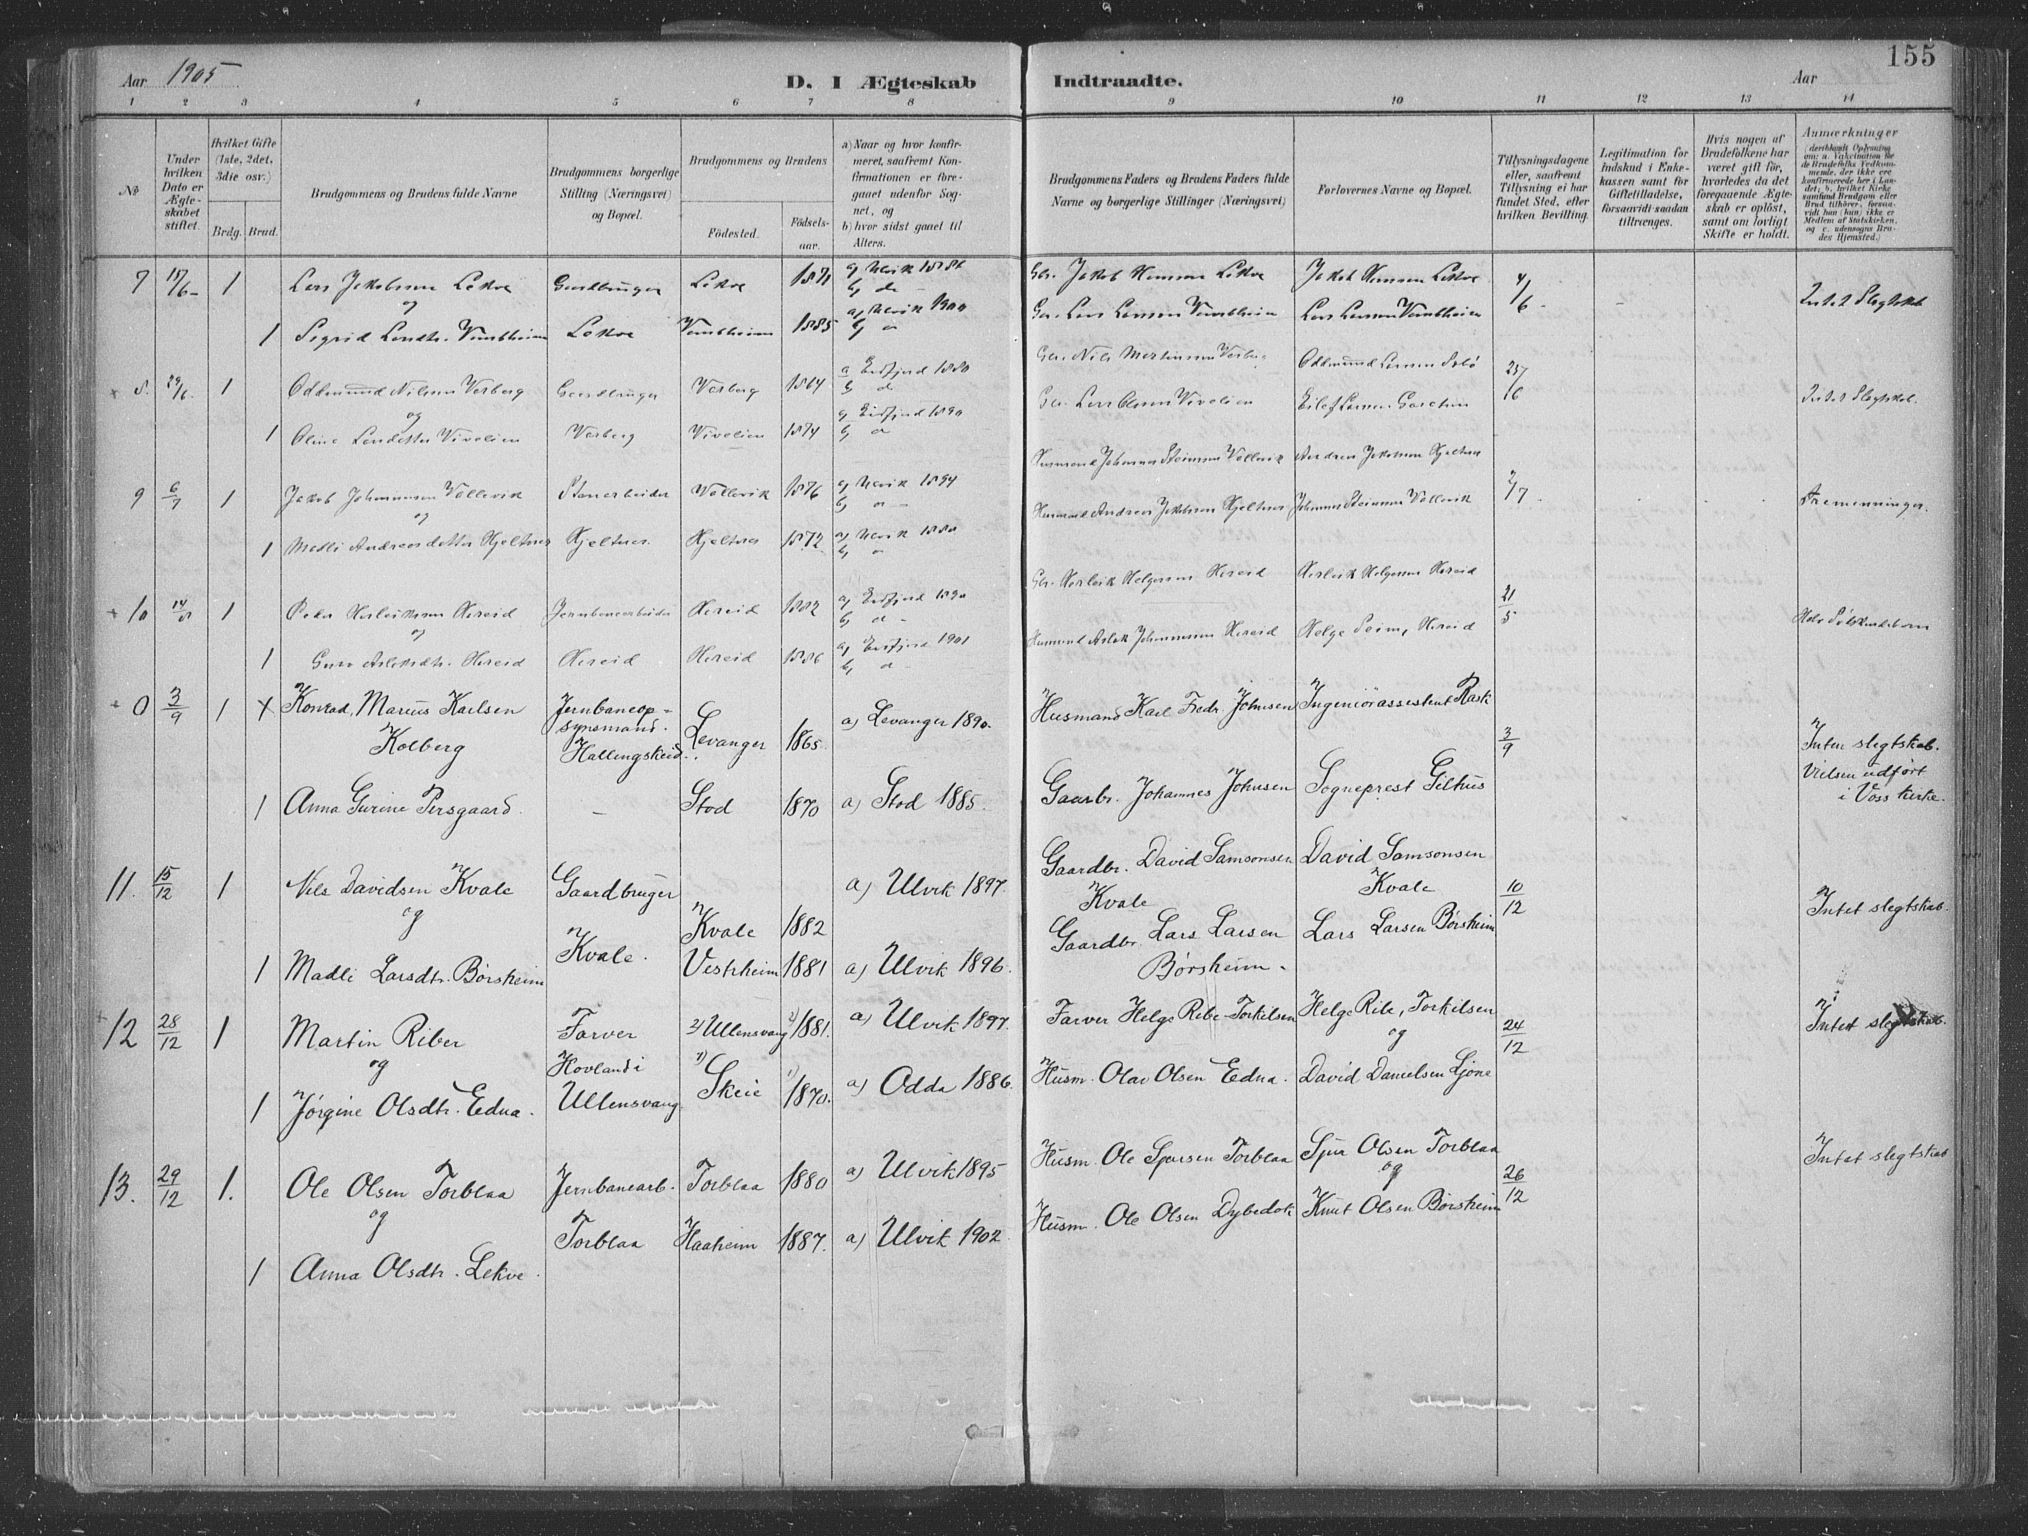 155
Aar 1905
D. I Ægteskab
Indtraadte.
Aar
1 2 3 4 5 6 7 8 9 10 11 12 13 14
No
Under hvilken Dato er Ægteskabet stiftet.
Hvilket Gifte (1ste, 2det, 3die osv.)
Brdg. Brud.
Brudgommens og Brudens fulde Navne
Brudgommens borgerlige Stilling (Næringsvei) og Bopæl.
Brudgommens og Brudens
Födested.
Födsels-aar.
a) Naar og hvor konfirmeret, saafremt Konfirmationen er foregaaet udenfor Sognet, og
b) hvor sidst gaaet til Alters.
Brudgommens Faders og Brudens Faders fulde Navne og borgerlige Stillinger (Næringsvei)
Forlovernes Navne og Bopæl.
Tillysningsdagene eller, saafremt Tillysning ei har fundet Sted, efter hvilken Bevilling.
Legitimation for Indskud i Enkekassen samt for Giftetilladelse, forsaavidt saadan tiltrænges.
Hvis nogen af Brudefolkene har været gift før, hvorledes da det foregaaende Ægteskab er oplöst, samt om lovligt Skifte er holdt.
Anmærkninger
7 1 Lars Jakobsen Lekve Gaardbruger Lekve a) Ulvik b) do Jakob Hansen Lekve Jakob Hansen Lekve 4/6 Intet Slegtskab
og
1 Sigrid Larsdtr. Lekve 1885 a) Ulvik 1900 Lars Larsen Lars Larsen
8. 29/6. 1 Oddmund Nilsen Varberg Gaardbruger Varberg 1864 a Eidfjord 1880 Gbr. Nils Mortensen Varberg Oddmund Larsen Intet Slegtskab.
og
1 Oline Larsdatter Vivelien Varberg Vivelien 1874 Eidfjord 1890 Gbr. Lars Olsen Vivelien Eilef Larsen
9 6/7 1 Jakob Johannesen Vallevik Stenarbeider Vallevik 1876 a) Ulvik 1894 Husmand Johannes Steinsen Vallevik Andreas Jakobsen Hjeltnes 2/7 Tremenninger.
og
1 Madli Andreasdatter Hjeltnes Hjeltnes Hjeltnes 1872 a) Ulvik Husmand Andreas Jakobsen Hjeltnes Johannes Steinsen Vallevik
10 14/ 1 Peder Herleiksen Hereid Jernbanearbeider Hereid 1882 a) Eidfjord Gbr. Herleik Helgesen Hereid Herleik Helgesen Hereid 21/5 Halv Sødskendebarn
og
1 Guro Aslaksdtr. Hereid Hereid Hereid 1886 a) Eidfjord 1901 Husmand Aslak Johannessen Hereid Helge Seim, Hereid
0 3/9 1 Konrad Marius Karlsen Kolberg Jernbaneop-synsmand. Hallingskeid. Levanger 1865. a) Levanger 1890. Husmand Karl Fredr. Johnsen Ingeniörassistent Rask 3/9 Inten slegtskab. Vielsen udført i Voss kirke.
1 Anna Gurine Persgaard. — Stod 1870 a) Stod 1885. Gaardbr. Johannes Johnsen Sogneprest Gilhus
11. 15/12 1 Nils Davidsen Kvale Gaardbruger Kvale. Kvale 1882 a) Ulvik 1897. Gaardbr. David Samsonsen Kvale David Samsonsen Kvale 10/12 Intet slegtskab.
og
1 Madli Larsdtr. Børsheim Vestrheim 1881 a) Ulvik 1896. Gaardbr. Lars Larsen Børsheim. Lars Larsen Børsheim
12 28/12 1 Martin Riber Farver Hovland i Ullensvang 2) Ullensvang 2) 1881. a) Ulvik 1897. Farver Helge Ribe Torkilsen Helge Ribe, Torkilsen 24/12 Intet slegtskab.
og og
1 Jørgine Olsdtr. Edna. 1) Skeie 1) 1870. a) Odda 1886. Husm. Olav Olsen Edna. David Danielsen Ljone
13. 29/12 1. Ole Olsen Torblaa Jernbanearb. Torblaa Torblaa 1880 a) Ulvik 1895 Husm. Ole Sjursen Torblaa Sjur Olsen Torblaa 26/12 Intet slegtskab
og og
1 Anna Olsdtr. Lekve. Haaheim 1887. a) Ulvik 1902. Husm. Ole Olsen Dybedok Knut Olsen Børsheim